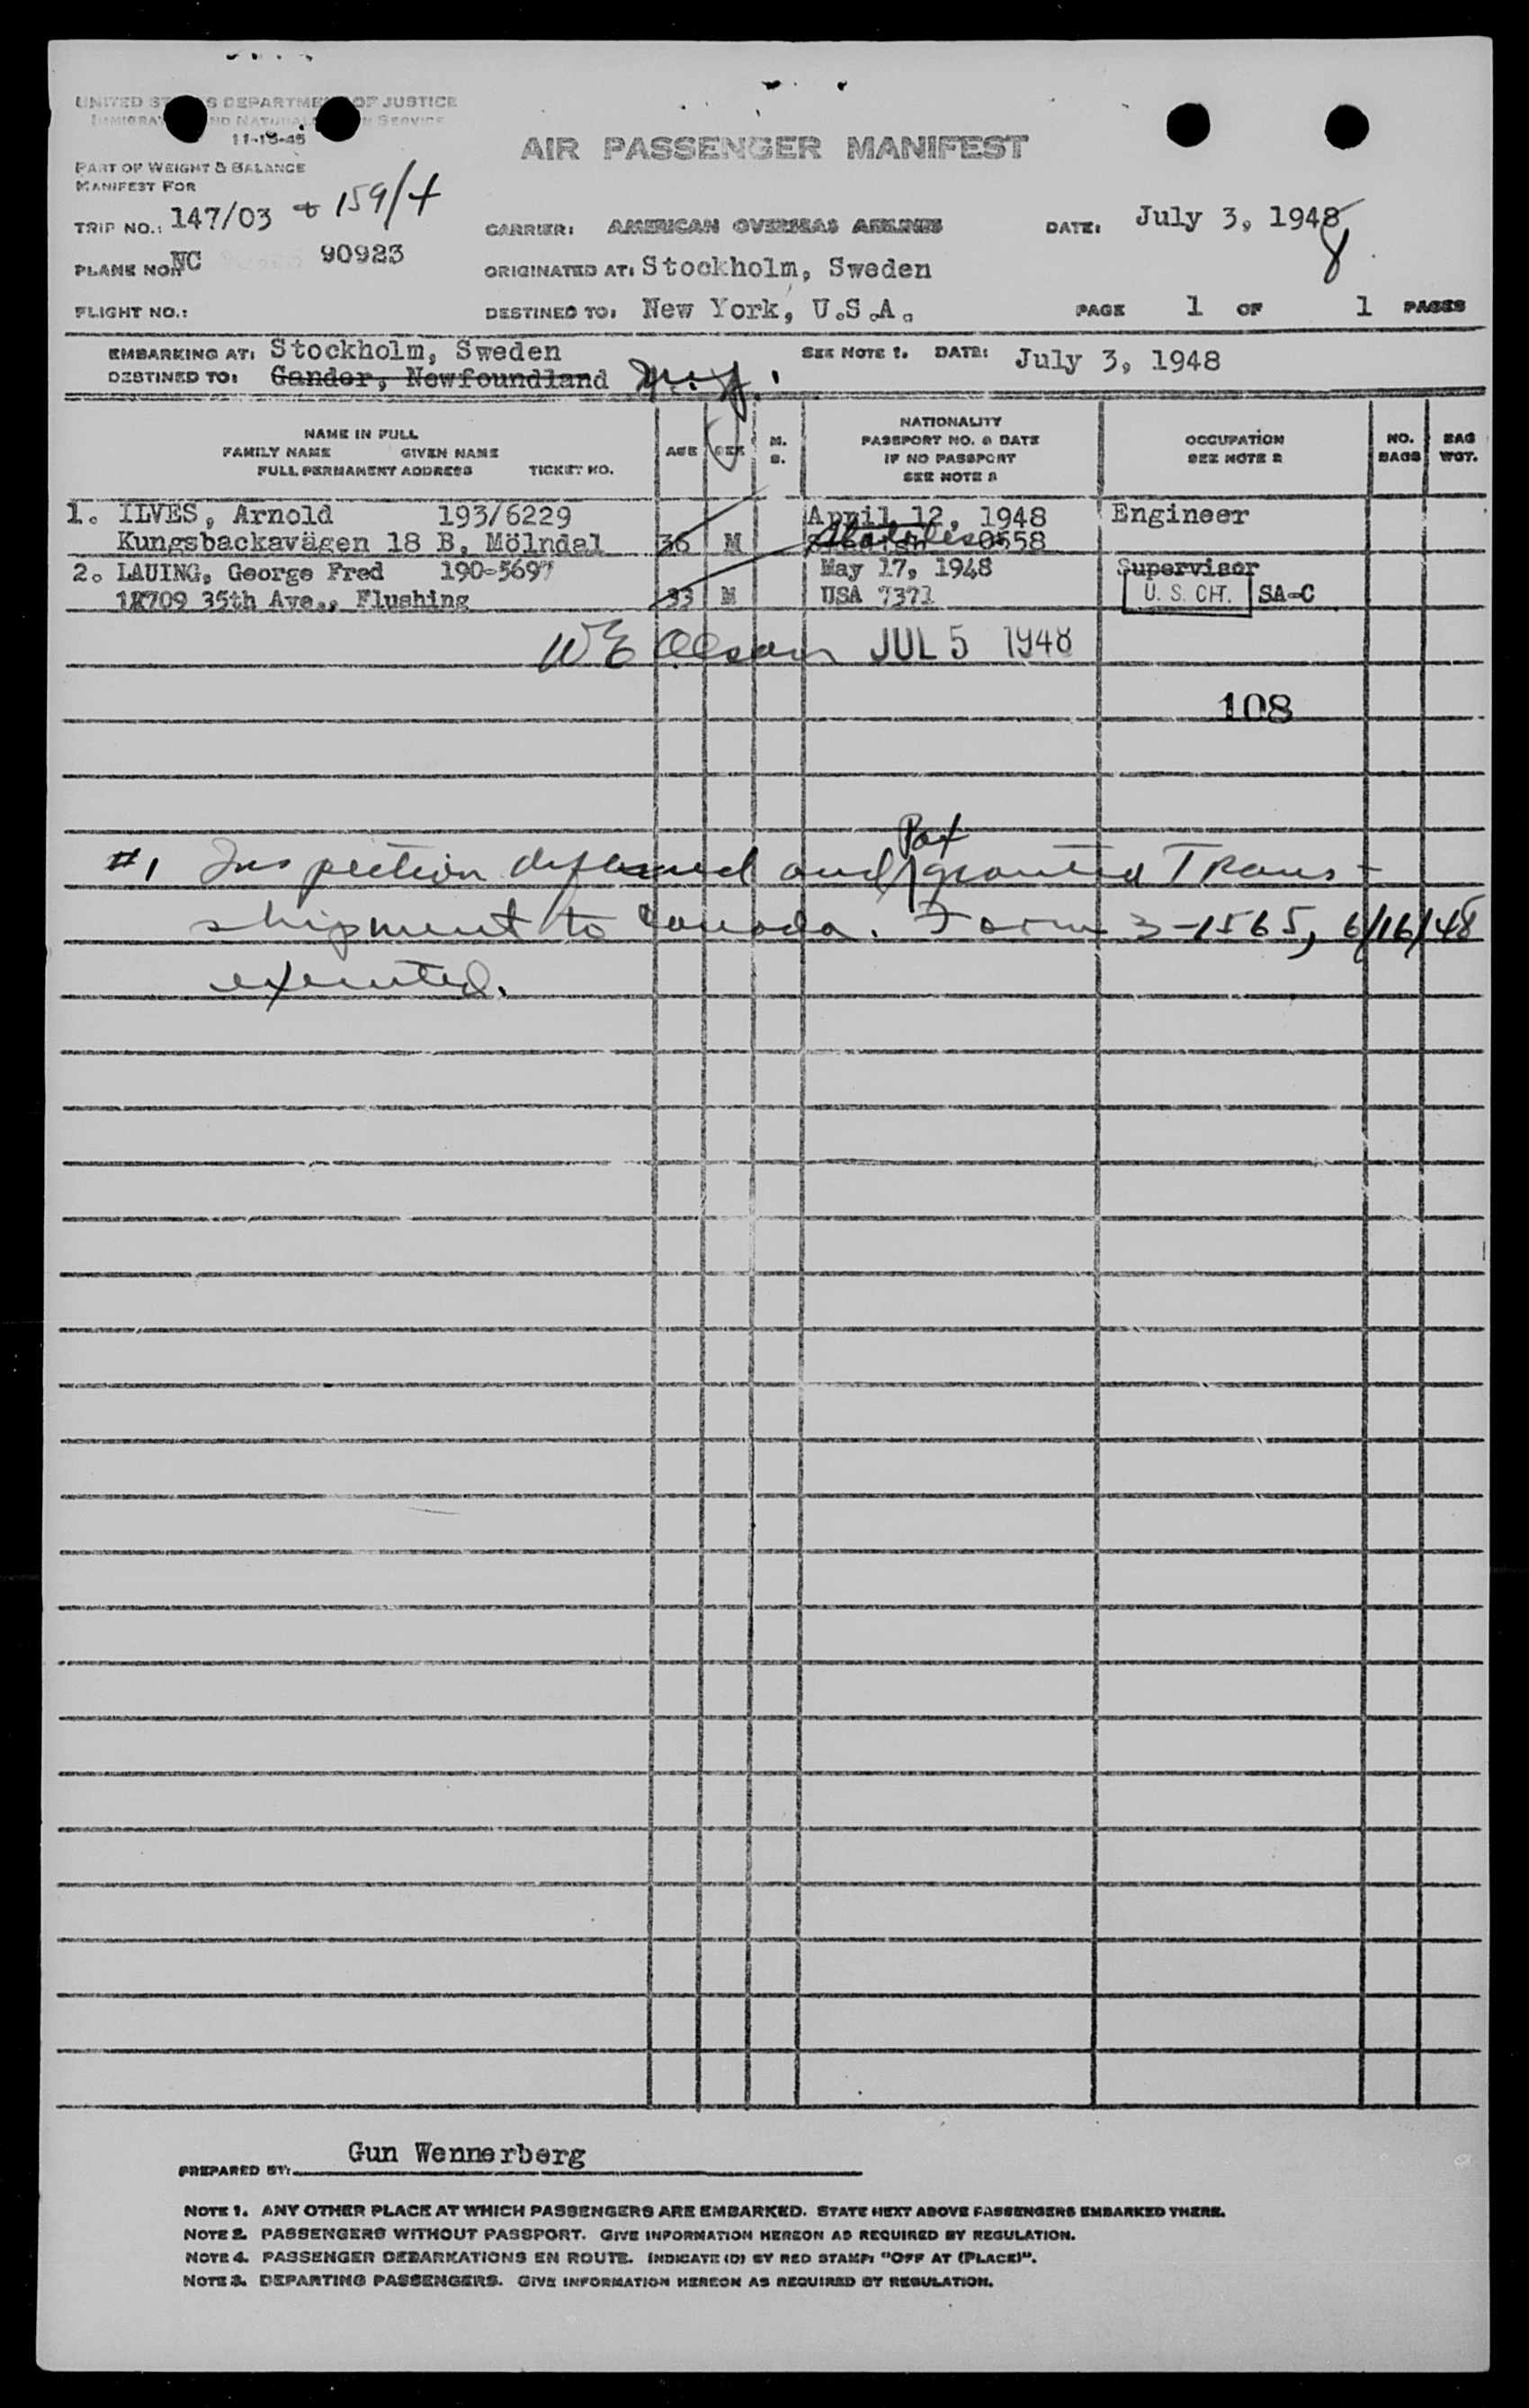 UNITED STATES DEPARTMENT OF JUSTICE
IMMIGRATION AND NATURALIZATION SERVICE
11-15-45
AIR PASSENGER MANIFEST
PART OF WEIGHT & BALANCE
MANIFEST FOR
TRIP NO.: 147/03 & 159/4
CARRIER: AMERICAN OVERSEAS AIRLINES
DATE: July 3, 1948
8
PLANE NO.: NC 90923
ORIGINATED AT: Stockholm, Sweden
FLIGHT NO.:
DESTINED TO: New York, U.S.A.
PAGE 1 OF 1 PAGES
EMBARKING AT: Stockholm, Sweden
SEE NOTE 1. DATE: July 3, 1948
DESTINED TO: Gander, Newfoundland N.Y.
NAME IN FULL
FAMILY NAME GIVEN NAME
FULL PERMANENT ADDRESS TICKET NO.
AGE
SEX
M.
S.
NATIONALITY
PASSPORT NO. & DATE
IF NO PASSPORT
SEE NOTE 2
OCCUPATION
SEE NOTE 2
NO.
BAGS
BAG
WGT.
1. ILVES, Arnold 193/6229 April 12, 1948 Engineer
Kungsbackavägen 18 B, Mölndal 36 M 0558
2. LAUING, George Fred 190-5697 May 17, 1948 Supervisor
709 35th Ave., Flushing 33 M USA 7371 U. S. CIT. SA-C
W E Olson JUL 5 1948
108
Pax
#1 Inspection deferred and granted Trans-
shipment to Canada. Form 3-1565, 6/16/48
executed.
PREPARED BY: Gun Wennerberg
NOTE 1. ANY OTHER PLACE AT WHICH PASSENGERS ARE EMBARKED. STATE NEXT ABOVE PASSENGERS EMBARKED THERE.
NOTE 2. PASSENGERS WITHOUT PASSPORT. GIVE INFORMATION HEREON AS REQUIRED BY REGULATION.
NOTE 4. PASSENGER DEBARKATIONS EN ROUTE. INDICATE (D) BY RED STAMP: "OFF AT (PLACE)".
NOTE 3. DEPARTING PASSENGERS. GIVE INFORMATION HEREON AS REQUIRED BY REGULATION.